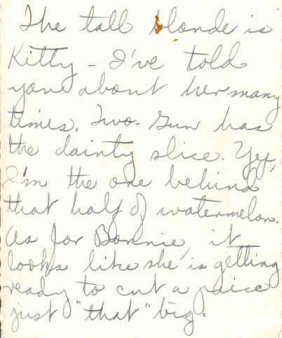 The tall blonde is
Kitty - I've told
you about her many
times. Two Gun has
the dainty slice. Yes,
I'm the one behind
that half of watermelon.
As for Bonnie, it
looks like she is getting
ready to cut a peice
just "that" big.